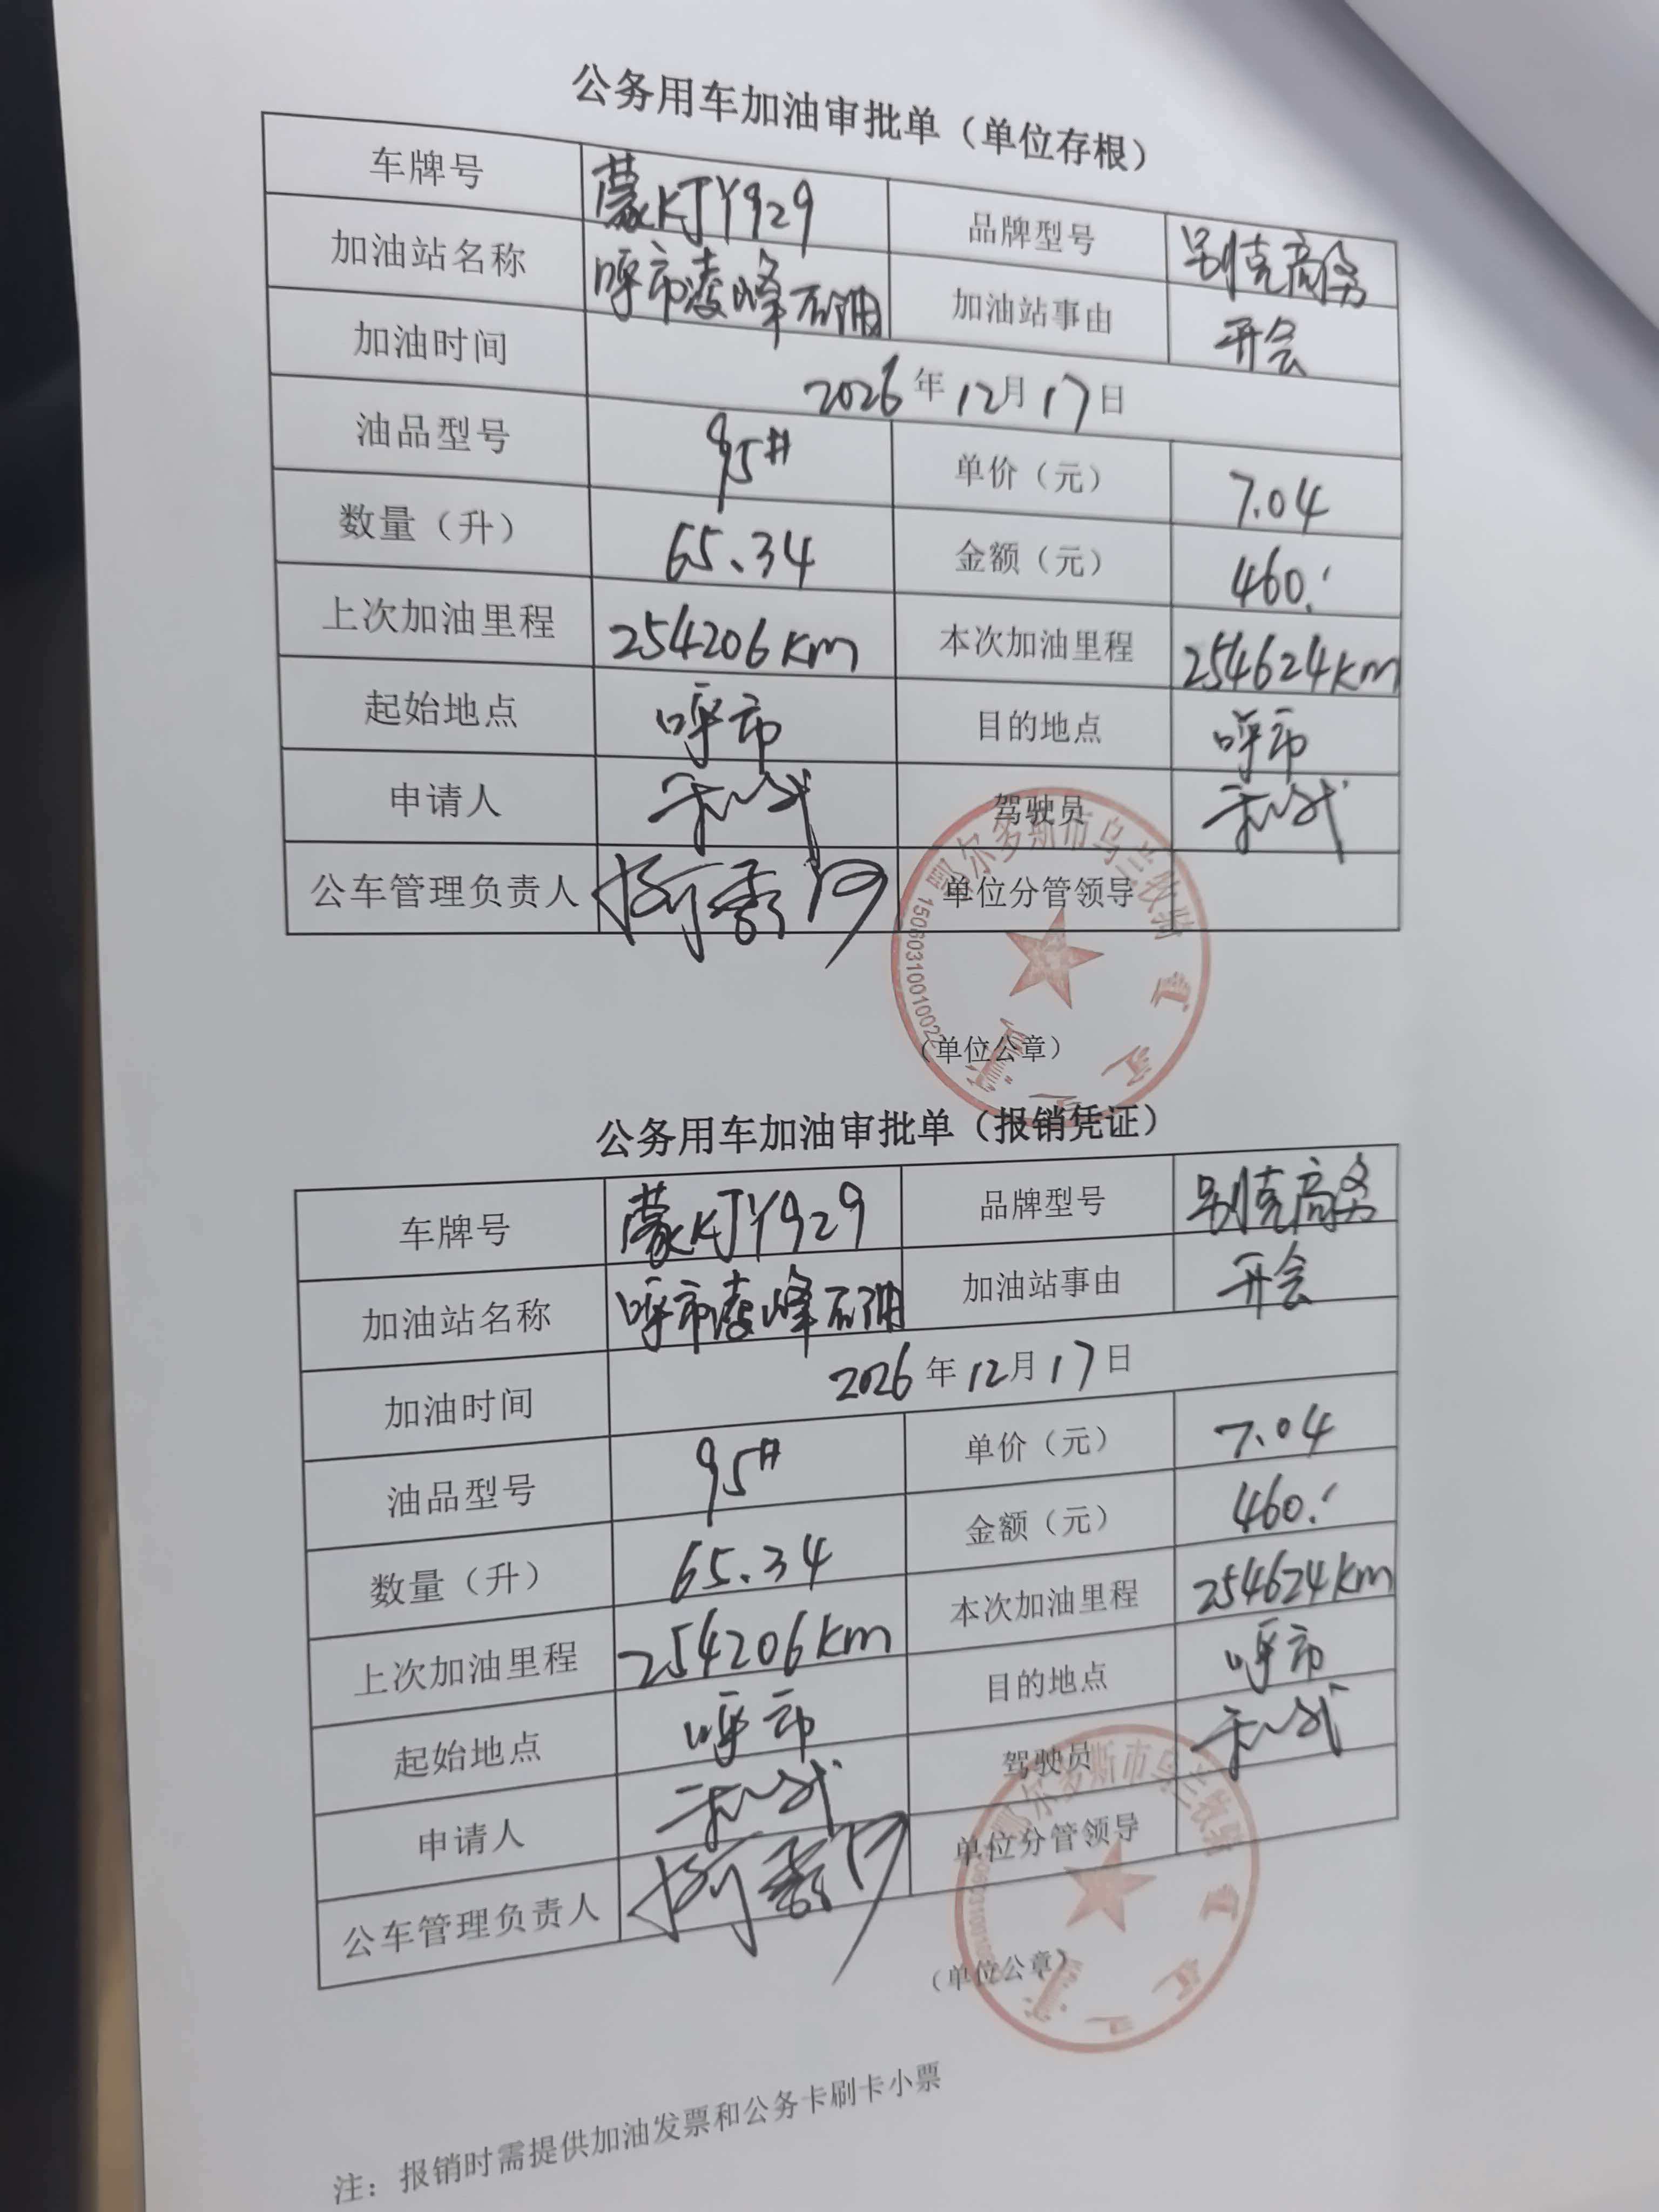 公务用车加油审批单（单位存根）
车牌号 蒙KJY929 品牌型号 别克商务
加油站名称 呼市凌峰石油 加油站事由 开会
加油时间 2026年12月17日
油品型号 95# 单价（元） 7.04
数量（升） 65.34 金额（元） 460.
上次加油里程 254206km 本次加油里程 254624km
起始地点 呼市 目的地点 呼市
申请人 驾驶员
公车管理负责人 单位分管领导
鄂尔多斯市乌兰牧骑
1506031001002
（单位公章）
公务用车加油审批单（报销凭证）
车牌号 蒙KJY929 品牌型号 别克商务
加油站名称 呼市凌峰石油 加油站事由 开会
加油时间 2026年12月17日
油品型号 95# 单价（元） 7.04
数量（升） 65.34 金额（元） 460.
上次加油里程 254206km 本次加油里程 254624km
起始地点 呼市 目的地点 呼市
申请人 驾驶员
公车管理负责人 单位分管领导
鄂尔多斯市乌兰牧骑
（单位公章）
注：报销时需提供加油发票和公务卡刷卡小票